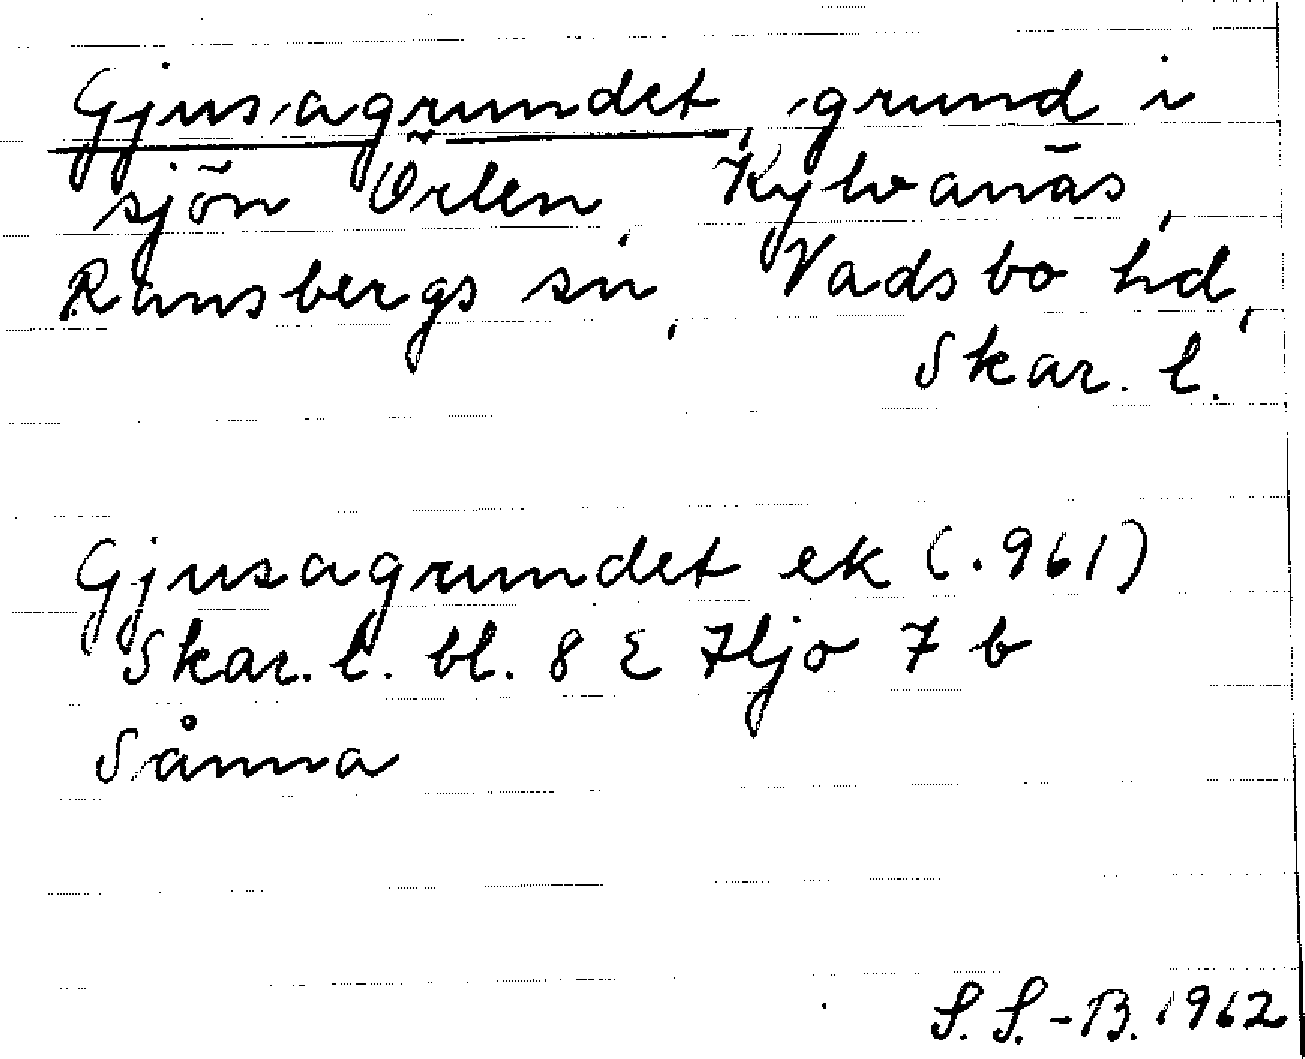 Gjusagrundet, grund i
sjön Örlen, Kylvanäs,
Ransbergs sn, Vadsbo hd,
Skar. l.
Gjusagrundet ek (.961)
Skar. l. bl. 8 E Hjo 7 b
Sånna
S. S.-B. 1962